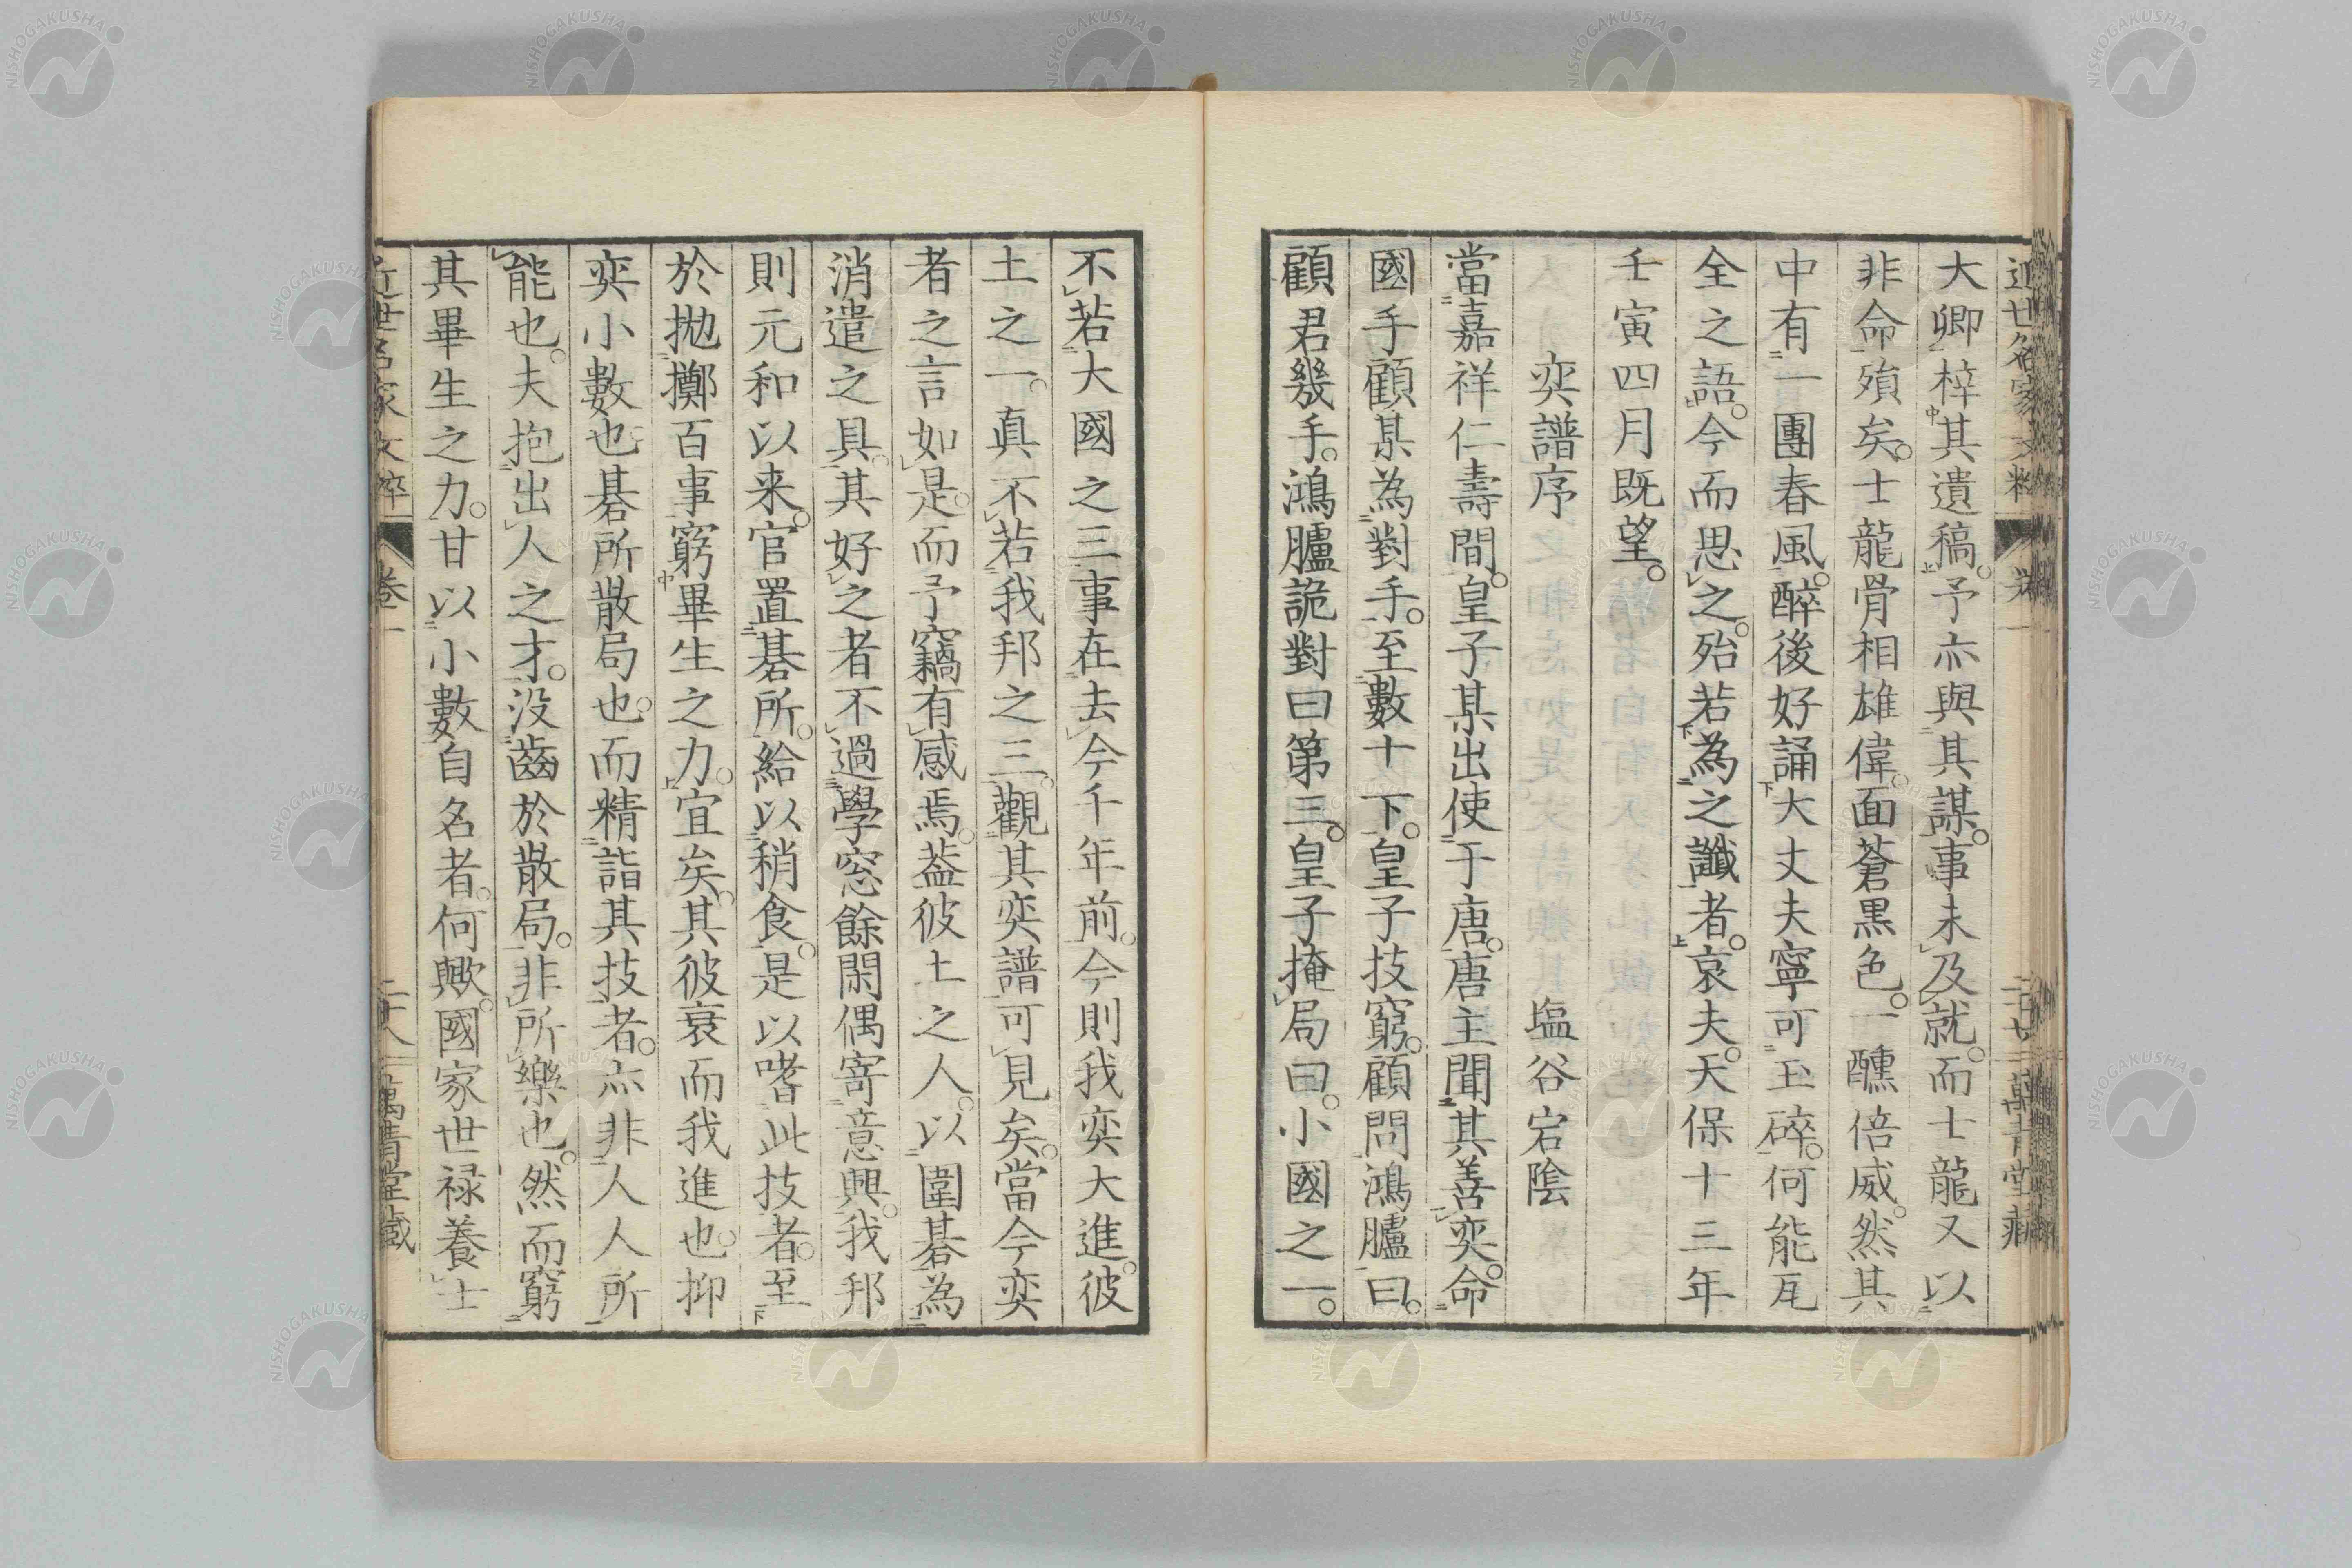 大卿梓其遺稿。予亦與其謀。事未及就。而士龍又以
非命殞矣。士龍骨相雄偉。面蒼黒色。一醺倍威。然其
中有一團春風。醉後好誦大丈夫寧可玉碎。何能瓦
全之語。今而思之。殆若為之讖者。哀夫。天保十三年
壬寅四月既望。
奕譜序 塩谷宕陰
當嘉祥仁壽間。皇子某出使于唐。唐主聞其善奕。命
國手顧某為對手。至數十下。皇子技窮。顧問鴻臚曰。
顧君幾手。鴻臚詭對曰第三。皇子掩局曰。小國之一。
不若大國之三。事在去今千年前。今則我奕大進。彼
土之一。真不若我邦之三。觀其奕譜可見矣。當今奕
者之言如是。而予竊有感焉。葢彼土之人。以圍碁為
消遣之具。其好之者不過學窓餘閑偶寄意興。我邦
則元和以来。官置碁所。給以稍食。是以嗜此技者。至
於拋擲百事窮畢生之力。宜矣。其彼衰而我進也。抑
奕小數也。碁所散局也。而精詣其技者。亦非人人所
能也。夫抱出人之才。没齒於散局。非所樂也。然而窮
其畢生之力。甘以小數自名者。何歟。國家世禄養士
近世名家文粹 卷一 二十八 萬青堂藏